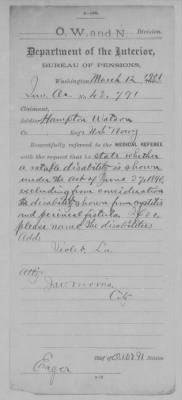 O. W. and N. Division.
Department of the Interior,
BUREAU OF PENSIONS,
Washington, March 12, 1901
No. 42,791
Claimant,
Soldier Hampton Watson
Co. Reg't Navy
Respectfully referred to the MEDICAL REFEREE
with the request that he state whether
a ratable disability is shown
under the act of June 27, 1890,
excluding from consideration
the disability shown from cystitis
and perineal fistula. If so
please name the disabilities
Add:
Violet, La
Att'y
J. W. Morris
City
Chief of O. W. & N. Division